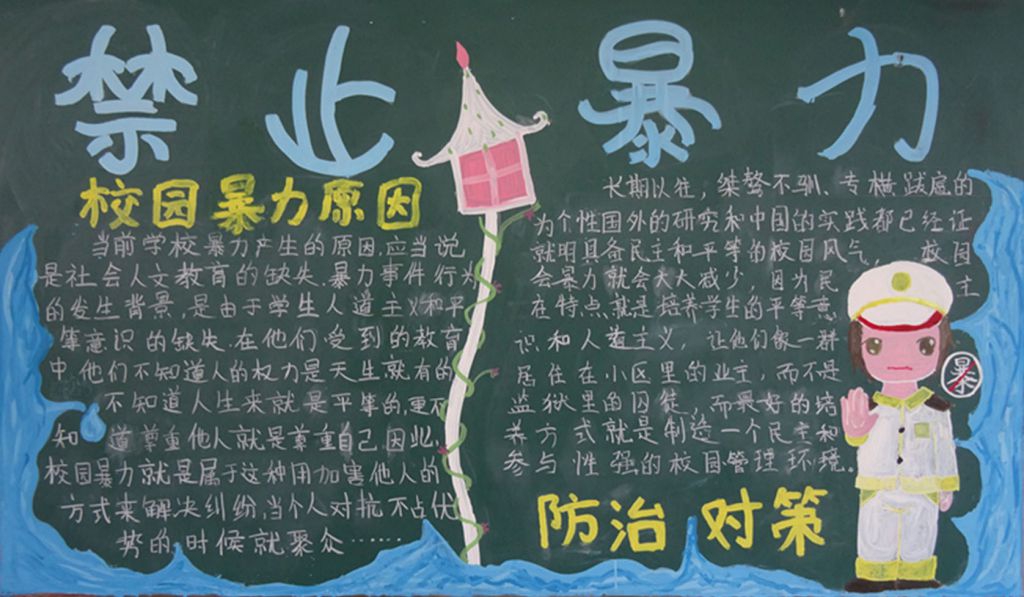 禁止暴力
校园暴力原因
当前学校暴力产生的原因,应当说
是社会人文教育的缺失.暴力事件行为
的发生背景,是由于学生人道主义和平
等意识的缺失.在他们受到的教育
中,他们不知道人的权力是天生就有的
不知道人生来就是平等的,更不
知道尊重他人就是尊重自己.因此,
校园暴力就是属于这种用加害他人的
方式来解决纠纷,当个人对抗不占优
势的时候就聚众……
长期以往,桀骜不驯、专横跋扈的
为个性国外的研究和中国的实践都已经证
就明具备民主和平等的校园风气, 校园
会暴力就会大大减少,因为民主
在特点就是培养学生的平等意
识和人道主义,让他们像一群
居住在小区里的业主,而不是
监狱里的囚徒,而最好的培
养方式就是制造一个民主和
参与性强的校园管理环境。
防治对策
暴